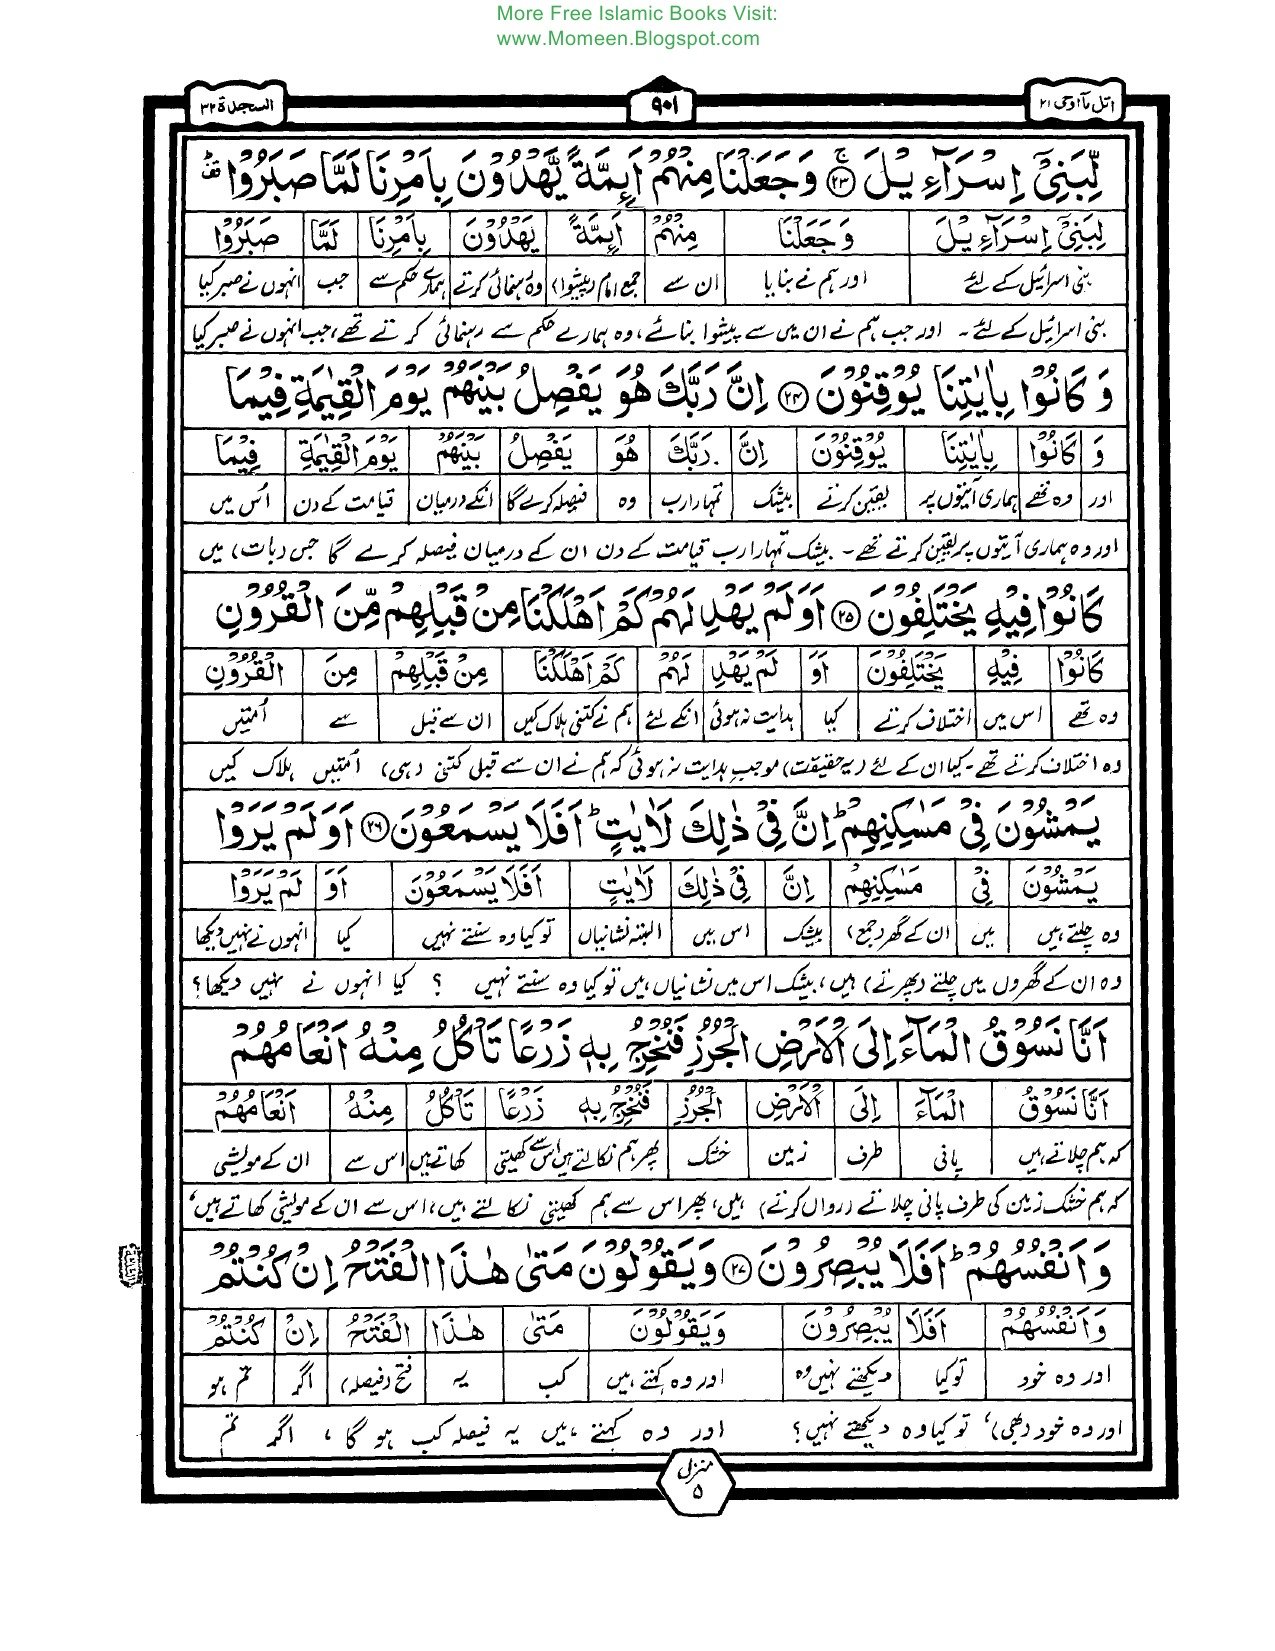 More Free Islamic Books Visit:
www.Momeen.Blogspot.com
اتل مآاوحی ۲۱ ۹۰۱ السجدة ۳۲
لِّبَنِیْۤ اِسْرَآءِیْلَ ﴿۲۳﴾ۚ وَجَعَلْنَا مِنْهُمْ اَىِٕمَّةً یَّهْدُوْنَ بِاَمْرِنَا لَمَّا صَبَرُوْا ۫ؕ
لِبَنِیْۤ اِسْرَآءِیْلَ وَجَعَلْنَا مِنْهُمْ اَىِٕمَّةً یَهْدُوْنَ بِاَمْرِنَا لَمَّا صَبَرُوْا
بنی اسرائیل کے لئے اور ہم نے بنایا ان سے جمع امام (پیشوا) وہ رہنمائی کرتے ہمارے حکم سے جب انہوں نے صبر کیا
بنی اسرائیل کے لئے۔ اور جب ہم نے ان میں سے پیشوا بنائے، وہ ہمارے حکم سے رہنمائی کرتے تھے، جب انہوں نے صبر کیا
وَكَانُوْا بِاٰیٰتِنَا یُوْقِنُوْنَ ﴿۲۴﴾ اِنَّ رَبَّكَ هُوَ یَفْصِلُ بَیْنَهُمْ یَوْمَ الْقِیٰمَةِ فِیْمَا
وَ كَانُوْا بِاٰیٰتِنَا یُوْقِنُوْنَ اِنَّ رَبَّكَ هُوَ یَفْصِلُ بَیْنَهُمْ یَوْمَ الْقِیٰمَةِ فِیْمَا
اور وہ تھے ہماری آیتوں پر یقین کرتے بیشک تمہارا رب وہ فیصلہ کرے گا انکے درمیان قیامت کے دن اُس میں
اور وہ ہماری آیتوں پر یقین کرتے تھے۔ بیشک تمہارا رب قیامت کے دن ان کے درمیان فیصلہ کرے گا جس (بات) میں
كَانُوْا فِیْهِ یَخْتَلِفُوْنَ ﴿۲۵﴾ اَوَلَمْ یَهْدِ لَهُمْ كَمْ اَهْلَكْنَا مِنْ قَبْلِهِمْ مِّنَ الْقُرُوْنِ
كَانُوْا فِیْهِ یَخْتَلِفُوْنَ اَوَ لَمْ یَهْدِ لَهُمْ كَمْ اَهْلَكْنَا مِنْ قَبْلِهِمْ مِنَ الْقُرُوْنِ
وہ تھے اس میں اختلاف کرتے کیا ہدایت نہ ہوئی انکے لئے ہم نے کتنی ہلاک کیں ان سے قبل سے اُمتیں
وہ اختلاف کرتے تھے۔ کیا ان کے لئے (یہ حقیقت) موجبِ ہدایت نہ ہوئی کہ ہم نے ان سے قبل کتنی (ہی) اُمتیں ہلاک کیں
یَمْشُوْنَ فِیْ مَسٰكِنِهِمْ ؕ اِنَّ فِیْ ذٰلِكَ لَاٰیٰتٍ ؕ اَفَلَا یَسْمَعُوْنَ ﴿۲۶﴾ اَوَلَمْ یَرَوْا
یَمْشُوْنَ فِیْ مَسٰكِنِهِمْ اِنَّ فِیْ ذٰلِكَ لَاٰیٰتٍ اَفَلَا یَسْمَعُوْنَ اَوَ لَمْ یَرَوْا
وہ چلتے ہیں میں ان کے گھر (جمع) بیشک اس میں البتہ نشانیاں تو کیا وہ سنتے نہیں کیا انہوں نے نہیں دیکھا
وہ ان کے گھروں میں چلتے (پھرتے) ہیں، بیشک اس میں نشانیاں ہیں تو کیا وہ سنتے نہیں ؟ کیا انہوں نے نہیں دیکھا؟
اَنَّا نَسُوْقُ الْمَآءَ اِلَى الْاَرْضِ الْجُرُزِ فَنُخْرِجُ بِهٖ زَرْعًا تَاْكُلُ مِنْهُ اَنْعَامُهُمْ
اَنَّا نَسُوْقُ الْمَآءَ اِلَى الْاَرْضِ الْجُرُزِ فَنُخْرِجُ بِهٖ زَرْعًا تَاْكُلُ مِنْهُ اَنْعَامُهُمْ
کہ ہم چلاتے ہیں پانی طرف زمین خشک پھر ہم نکالتے ہیں اس سے کھیتی کھاتے ہیں اس سے ان کے مویشی
کہ ہم خشک زمین کی طرف پانی چلاتے (رواں کرتے) ہیں، پھر اس سے ہم کھیتی نکالتے ہیں، اس سے ان کے مویشی کھاتے ہیں،
وَاَنْفُسُهُمْ ؕ اَفَلَا یُبْصِرُوْنَ ﴿۲۷﴾ وَیَقُوْلُوْنَ مَتٰى هٰذَا الْفَتْحُ اِنْ كُنْتُمْ
وَاَنْفُسُهُمْ اَفَلَا یُبْصِرُوْنَ وَیَقُوْلُوْنَ مَتٰى هٰذَا الْفَتْحُ اِنْ كُنْتُمْ
اور وہ خود تو کیا دیکھتے نہیں وہ اور وہ کہتے ہیں کب یہ فتح (فیصلہ) اگر تم ہو
اور وہ خود (بھی)، تو کیا وہ دیکھتے نہیں؟ اور وہ کہتے ہیں یہ فیصلہ کب ہو گا، اگر تم
منزل ۵